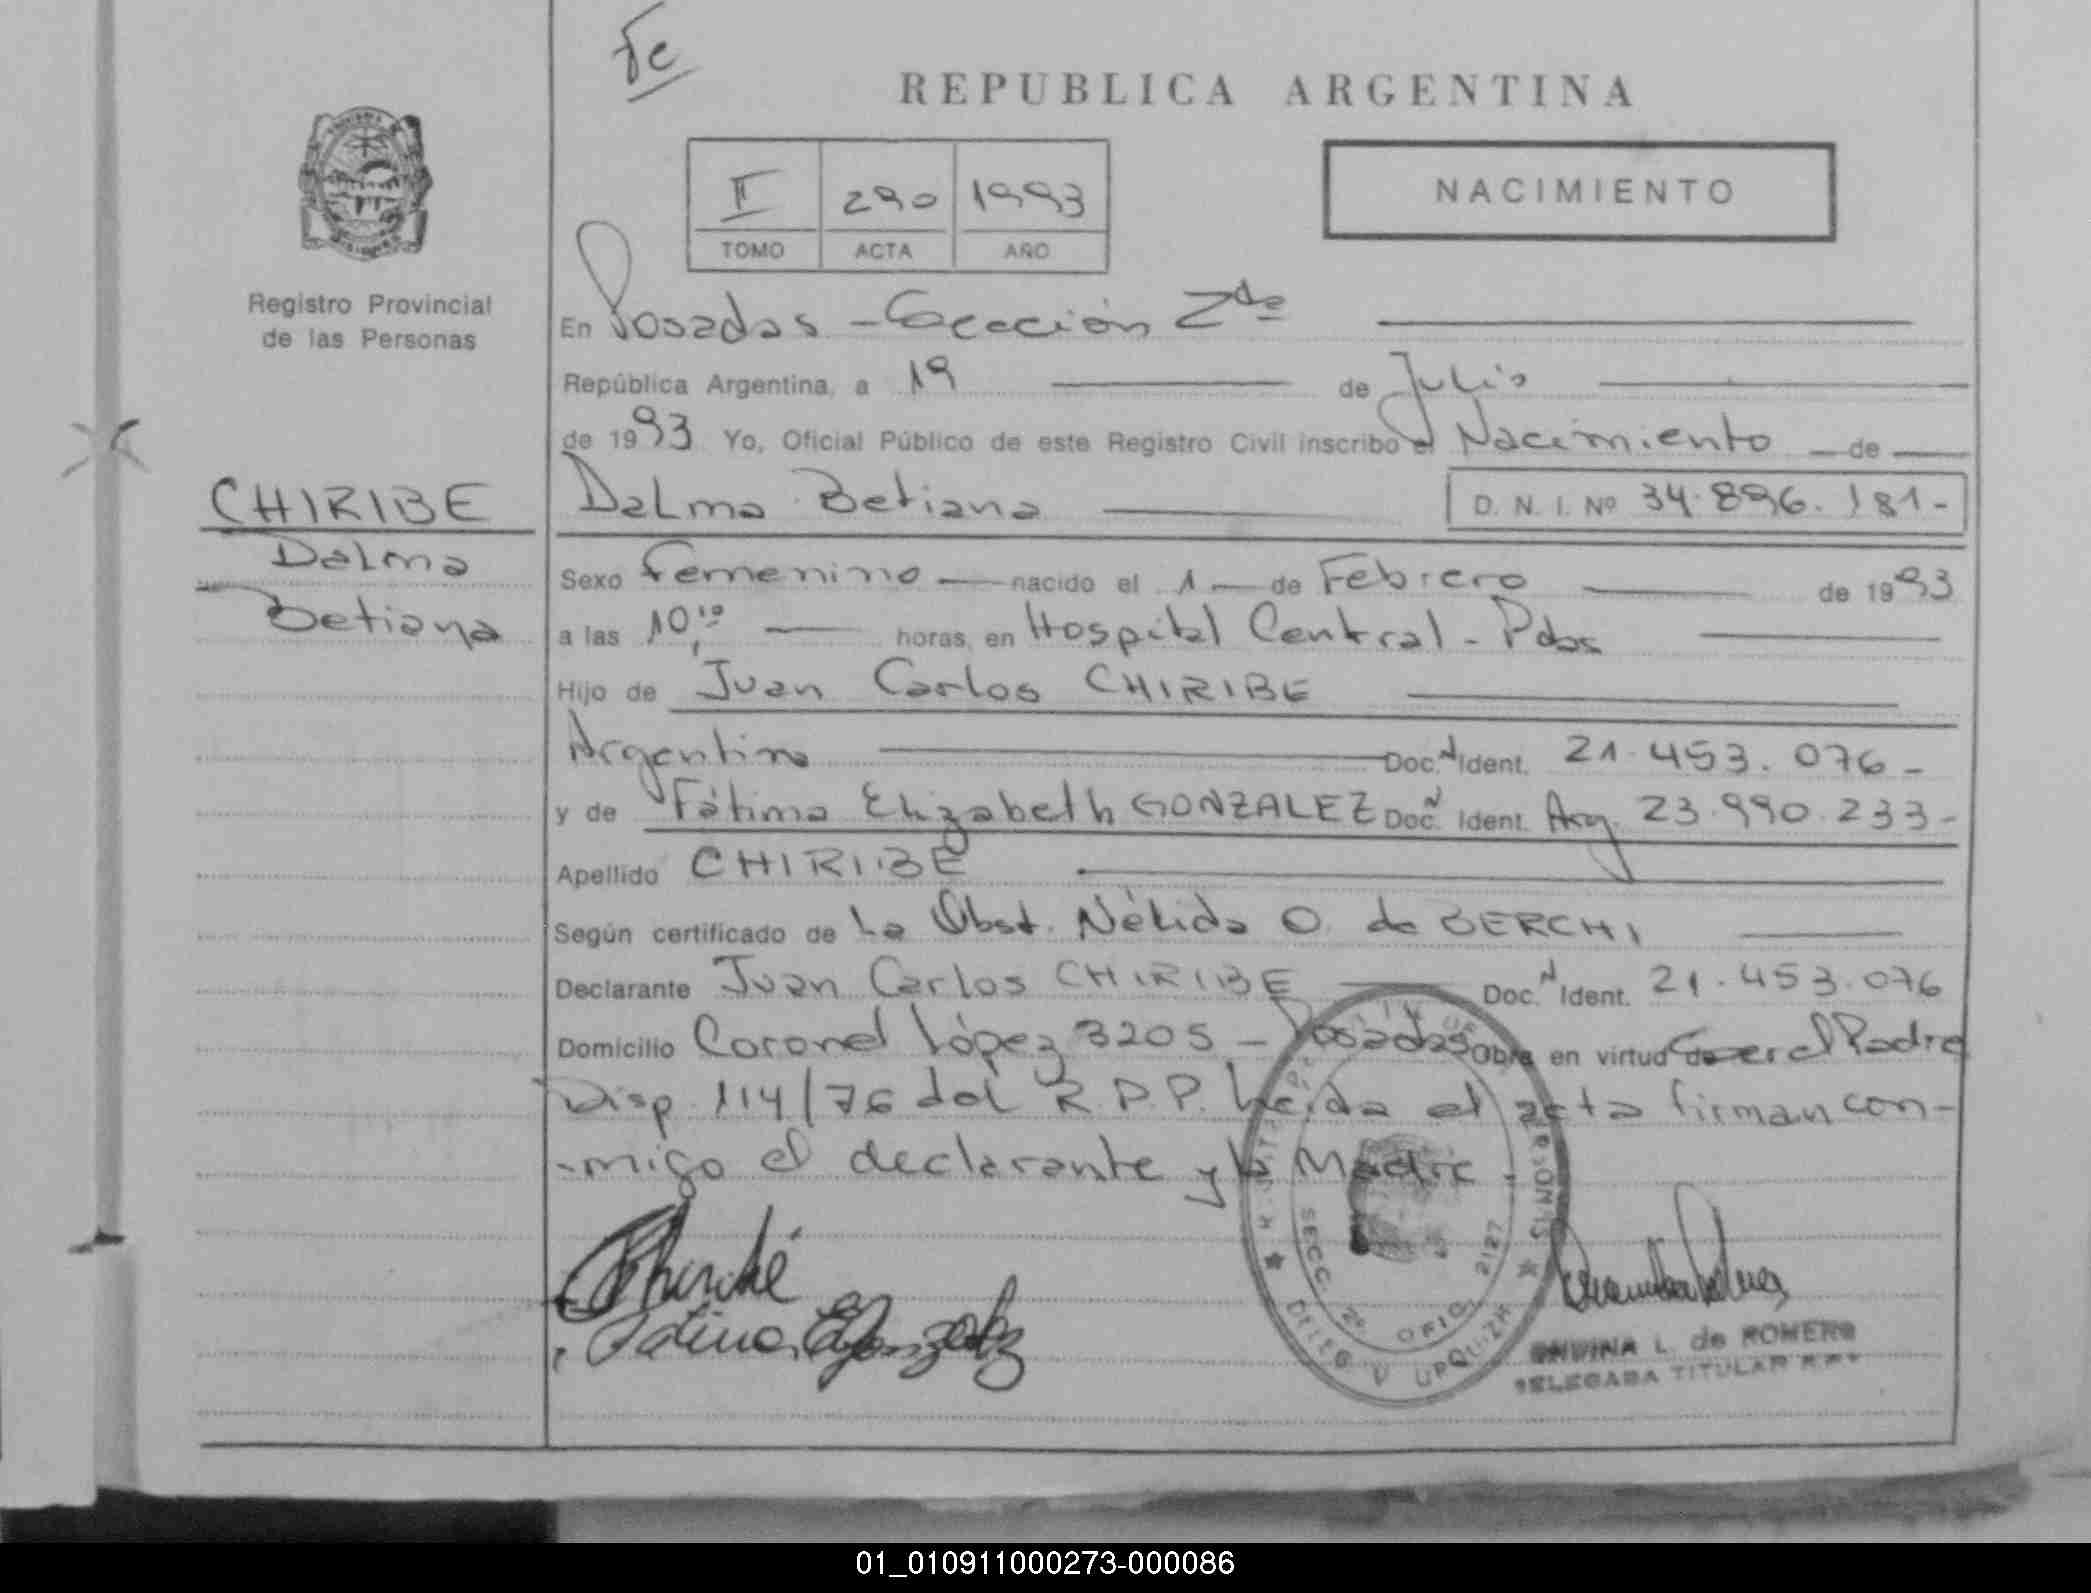 Fe
REPUBLICA ARGENTINA
II 290 1993
TOMO ACTA AÑO
NACIMIENTO
Registro Provincial
de las Personas
En Posadas - Sección 2da
República Argentina, a 19 de Julio
de 1993 Yo, Oficial Público de este Registro Civil inscribo el Nacimiento de
CHIRIBE
Dalma
Betiana
Dalma Betiana D. N. I. Nº 34.896.181-
Sexo Femenino nacido el 1 de Febrero de 1993
a las 10,10 horas, en Hospital Central - Pdas
Hijo de Juan Carlos CHIRIBE
Argentino Doc. N Ident. 21.453.076-
y de Fátima Elizabeth GONZALEZ Doc. N Ident. Arg. 23.990.233-
Apellido CHIRIBE
Según certificado de La Obst. Nélida O. de BERCHI
Declarante Juan Carlos CHIRIBE Doc. N Ident. 21.453.076
Domicilio Coronel López 3205 - Posadas Obra en virtud de ser el Padre
Disp. 114/76 del R.P.P. Leída el acta firman con-
-migo el declarante y la Madre
Chiribé
Fatima E Gonzalez
SECC. 2º OFIC. 2127
MISIONES
DELEG V URQUIZA
L. de ROMERO
DELEGADA TITULAR
01_010911000273-000086